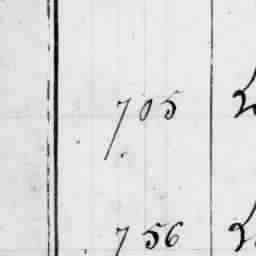 705
756